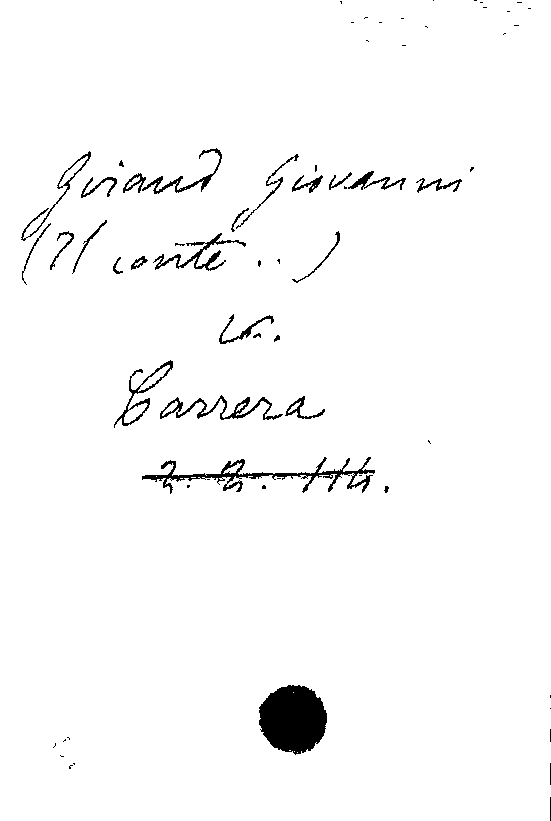 Giraud Giovanni
(Il conte ..)
v.
Carrera
2. B. 114.